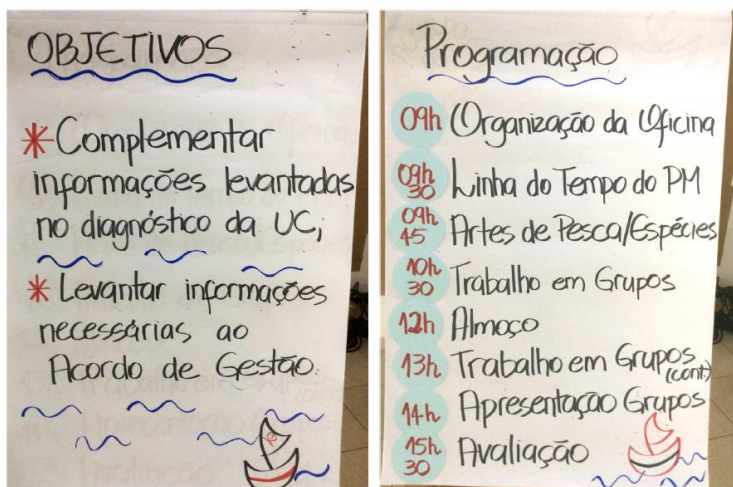 OBJETIVOS
* Complementar
informações levantadas
no diagnóstico da UC;
* Levantar informações
necessárias ao
Acordo de Gestão.
Programação
09h Organização da Oficina
09h30 Linha do Tempo do PM
09h45 Artes de Pesca/Espécies
10h30 Trabalho em Grupos
12h Almoço
13h Trabalho em Grupos (cont)
14h Apresentação Grupos
15h30 Avaliação